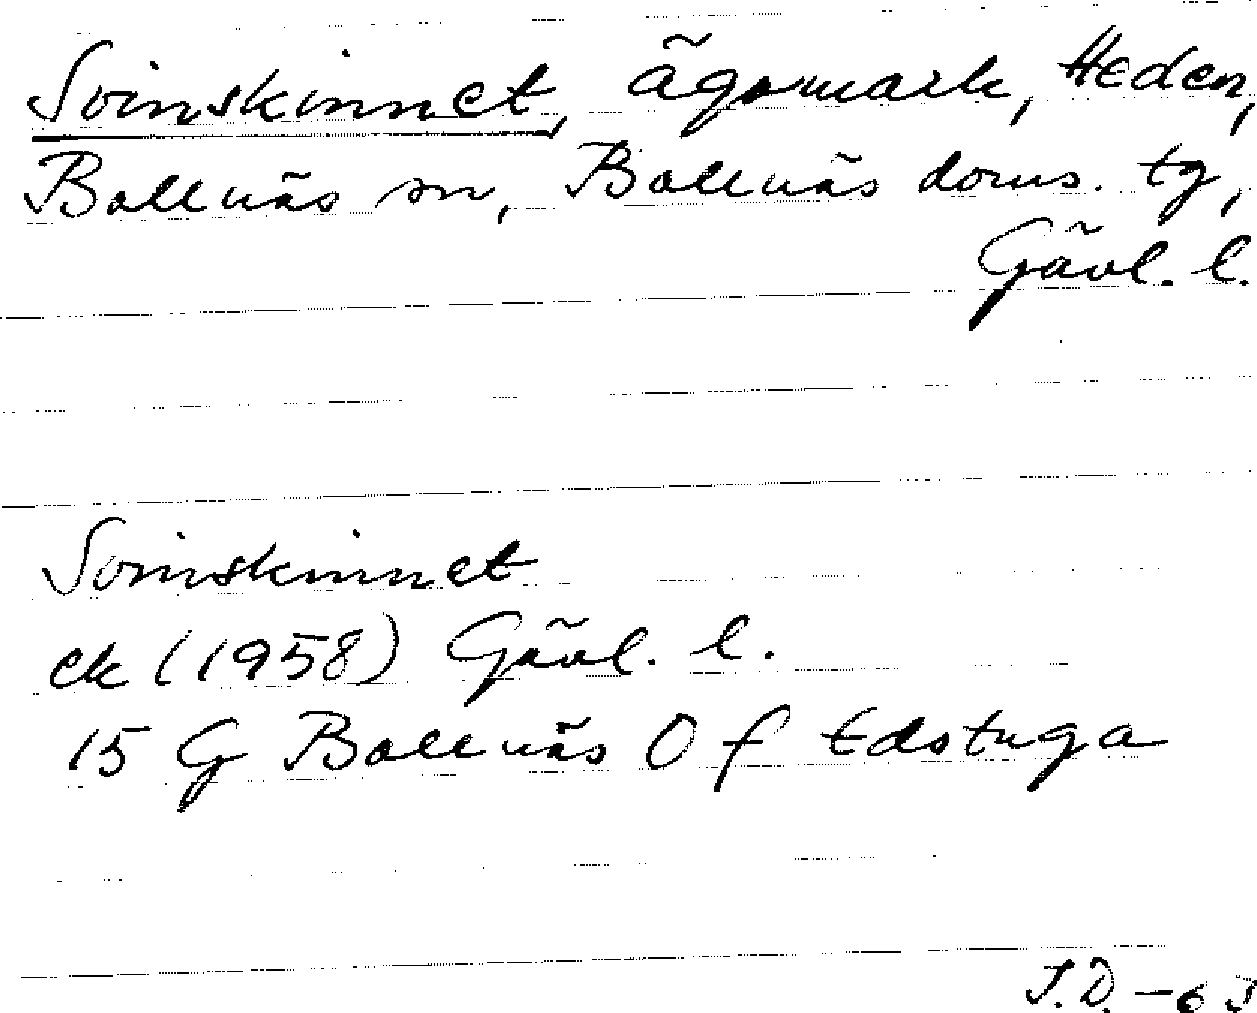 Svinskinnet, ägomark, Heden,
Bollnäs sn, Bollnäs doms. tg,
Gävl. l.
Svinskinnet
ek (1958) Gävl. l.
15 G Bollnäs O f Edstuga
J.D. -63